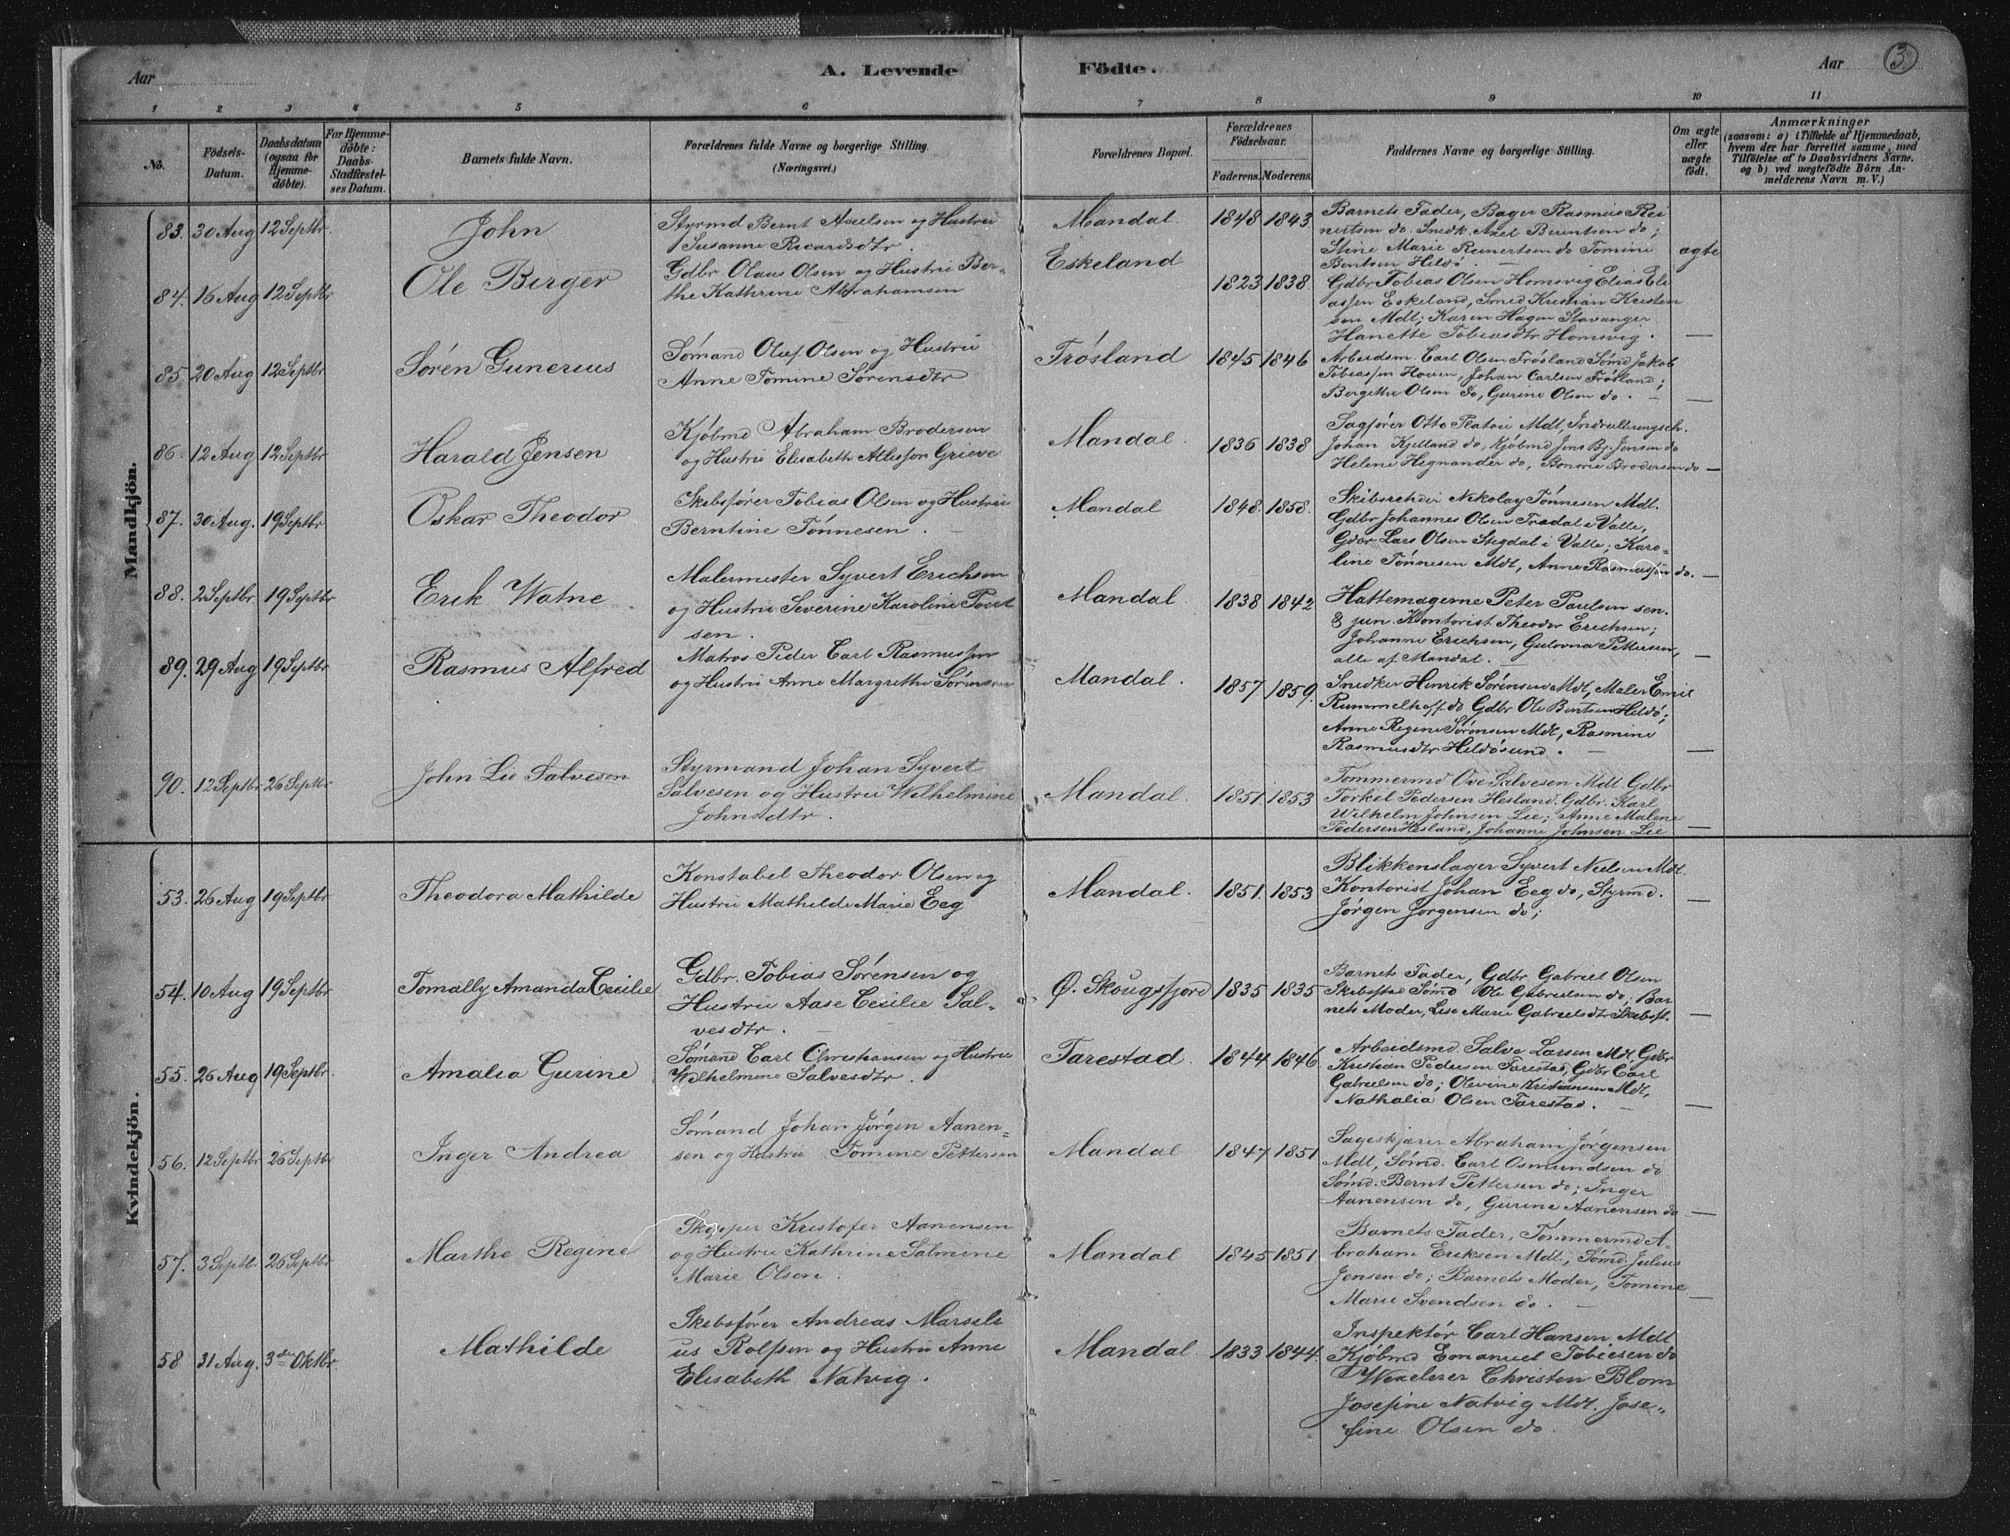 Aar
A. Levende Födte.
Aar
3
1 2 3 4 5 6 7 8 9 10 11
No.
Födsels-
Datum.
Daabsdatum
(ogsaa for
Hjemme-
døbte).
For Hjemme-
døbte:
Daabs-
Stadfæstel-
ses Datum.
Barnets fulde Navn.
Forældrenes fulde Navne og borgerlige Stilling.
(Næringsvei.)
Forældrenes Bopæl.
Forældrenes
Födselsaar.
Faderens. Moderens.
Faddernes Navne og borgerlige Stilling.
Om ægte
eller
uægte
födt.
Anmærkninger
(saasom: a) i Tilfælde af Hjemmedaab,
hvem der har forrettet samme, med
Tilföielse af to Daabsvidners Navne,
og b) ved uægtefödte Börn An-
melderens Navn m. V.)
Mandkjön.
83. 30 Aug 12 Septbr
John
Styrmd Bernt Axelsen og Hustru
Susanne Ricardsdtr.
Mandal
1848 1843
Barnets Fader, Bager Rasmus Rei
nertsen do. Snedk. Axel Berentsen do;
Stine Marie Reinertsen do Tomine
Bentsen Hildø.
ægte
84. 16 Aug 12 Septbr
Ole Birger
Gdbr Olaus Olsen og Hustru Ber-
the Kathrine Abrahamsen
Eskeland
1823 1838
Gdbr Tobias Olsen Homsvig Elias Eli
assen Eskeland, Smed Kristian Kristen
sen Mdl; Karen Hagen Stavanger
Hanette Tobiasdtr Homsvig.
—
85 20 Aug 12 Septbr
Søren Gunerius
Sømand Oluf Olsen og Hustru
Anne Tomine Sørensdtr
Trøsland
1845 1846
Arbeidsm. Carl Olsen Trøsland Sømd Jakob
Tobiassen Hoven, Johan Carlsen Trøsland;
Bergitte Olsen do, Gurine Olsen do. —
—
86. 12 Aug 12 Septbr
Harald Jensen
Kjøbmd Abraham Brodersen
og Hustru Elisabeth Grieve
Mandal.
1836 1838
Sagfører Otto Mdl,
Johan Kjelland do, Kjøbmd Jens Jensen do
Helene Hegnander do, Brodersen do —
87. 30 Aug. 19 Septbr
Oskar Theodor
Skibsfører Tobias Olsen og Hustru
Berntine Tønnesen.
Mandal
1848. 1858.
Skibsreder Nikolay Tønnesen Mdl.
Gdbr Johannes Olsen i Valle,
Gdbr Lars Olsen Stegdal i Valle; Karo-
line Tønnesen Mdl, Anne Rasmussen do.
—
88. 2 Septbr. 19 Septbr
Erik Watne
Malermester Syvert Erichsen
og Hustru Severine Karoline Poul
sen.
Mandal
1838 1842
Hattemagerne Peter Paulsen sen.
& jun. Kontorist Theodor Erichsen;
Johanne Erichsen, Gulovna Pettersen,
alle af Mandal.
—
89. 29 Aug 19 Septbr
Rasmus Alfred
Matros Peder Carl Rasmussen
og Hustru Anne Margrethe Sørensen
Mandal.
1857 1859.
Snedker Henrik Sørensen Mdl, Maler Emil
Rummelhoff do Gdbr Ole Bentsen Hildø;
Anne Regine Sørensen Mdl, Rasmine
Rasmusdtr Hildøsund. —
—
90. 12 Septbr 26 Septbr
John Lie Salvesen
Styrmand Johan Syvert
Salvesen og Hustru Wilhelmine
Johnsdtr.
Mandal.
1851. 1853
Tømmermd Ove Salvesen Mdl. Gdbr
Torkel Pedersen Hesland. Gdbr. Karl
Wilhelm Johnsen Lie; Anne Malene
Pedersen Hesland, Johanne Johnsen Lie
—
Kvindekjön.
53. 26 Aug 19 Septbr
Theodora Mathilde
Konstabel Theodor Olsen og
Hustru Mathilde Marie Eeg
Mandal.
1851. 1853
Blikkenslager Syvert Nielsen Mdl.
Kontorist Johan Eeg do, Styrmd.
Jørgen Jørgensen do;
—
54. 10 Aug 19 Septbr
Tomally Amanda Cecilie
Gdbr. Tobias Sørensen og
Hustru Aase Cecilie Sal-
vesdtr.
Ø. Skougsfjord
1835 1835
Barnets Fader, Gdbr Gabriel Olsen
Skibstad Sømd Ole Gabrielsen do; Bar
nets Moder, Lise Marie Gabrielsdtr Skibst.
—
55. 26 Aug 19 Septbr.
Amalia Gurine
Sømand Carl Christiansen og Hustru
Wilhelmine Salvesdtr.
Tarestad.
1844 1846
Arbeidsmd. Salve Larsen Mdl Gdbr
Kristian Pedersen Tarestad, Gdbr Carl
Gabrielsen do; Olevine Kristiansen Mdl,
Nathalia Olsen Tarestad.
—
56. 12 Septbr 26 Septbr
Inger Andrea
Sømand Johan Jørgen Aanen-
sen og Hustru Tomine Pettersen
Mandal
1847 1851
Sageskjærer Abraham Jørgensen
Mdl, Sømd. Carl Osmundsen do
Sømd. Bernt Pettersen do; Inger
Aanensen do, Gurine Aanensen do
—
57. 3 Septbr 26 Septbr
Marthe Regine
Skipper Kristofer Aanensen
og Hustru Kathrine Salmine
Marie Olsen.
Mandal
1845 1851
Barnets Fader, Tømmermd A-
braham Eriksen Mdl, Sømd Julius
Jensen do; Barnets Moder, Tomine
Marie Svendsen do. —
—
58 31 Aug. 3die Oktbr
Mathilde
Skibsfører Andreas Marseli
us Rolfsen og Hustru Anne
Elisabeth Natvig.
Mandal
1833 1844
Inspektør Carl Hansen Mdl
Kjøbmd Emanuel Tobiesen do
Christen Blom
Josefine Natvig Mdl. Jose-
fine Olsen do.